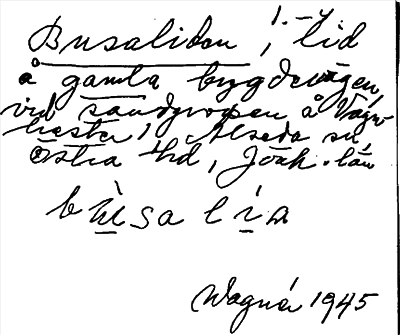 Busalidan, 1. – lid
å gamla bygdevägen
vid sandgropen å Vägn-
hester, Alseda sn,
Östra hd, Jönk. län
bùsalía
Wagnå 1945